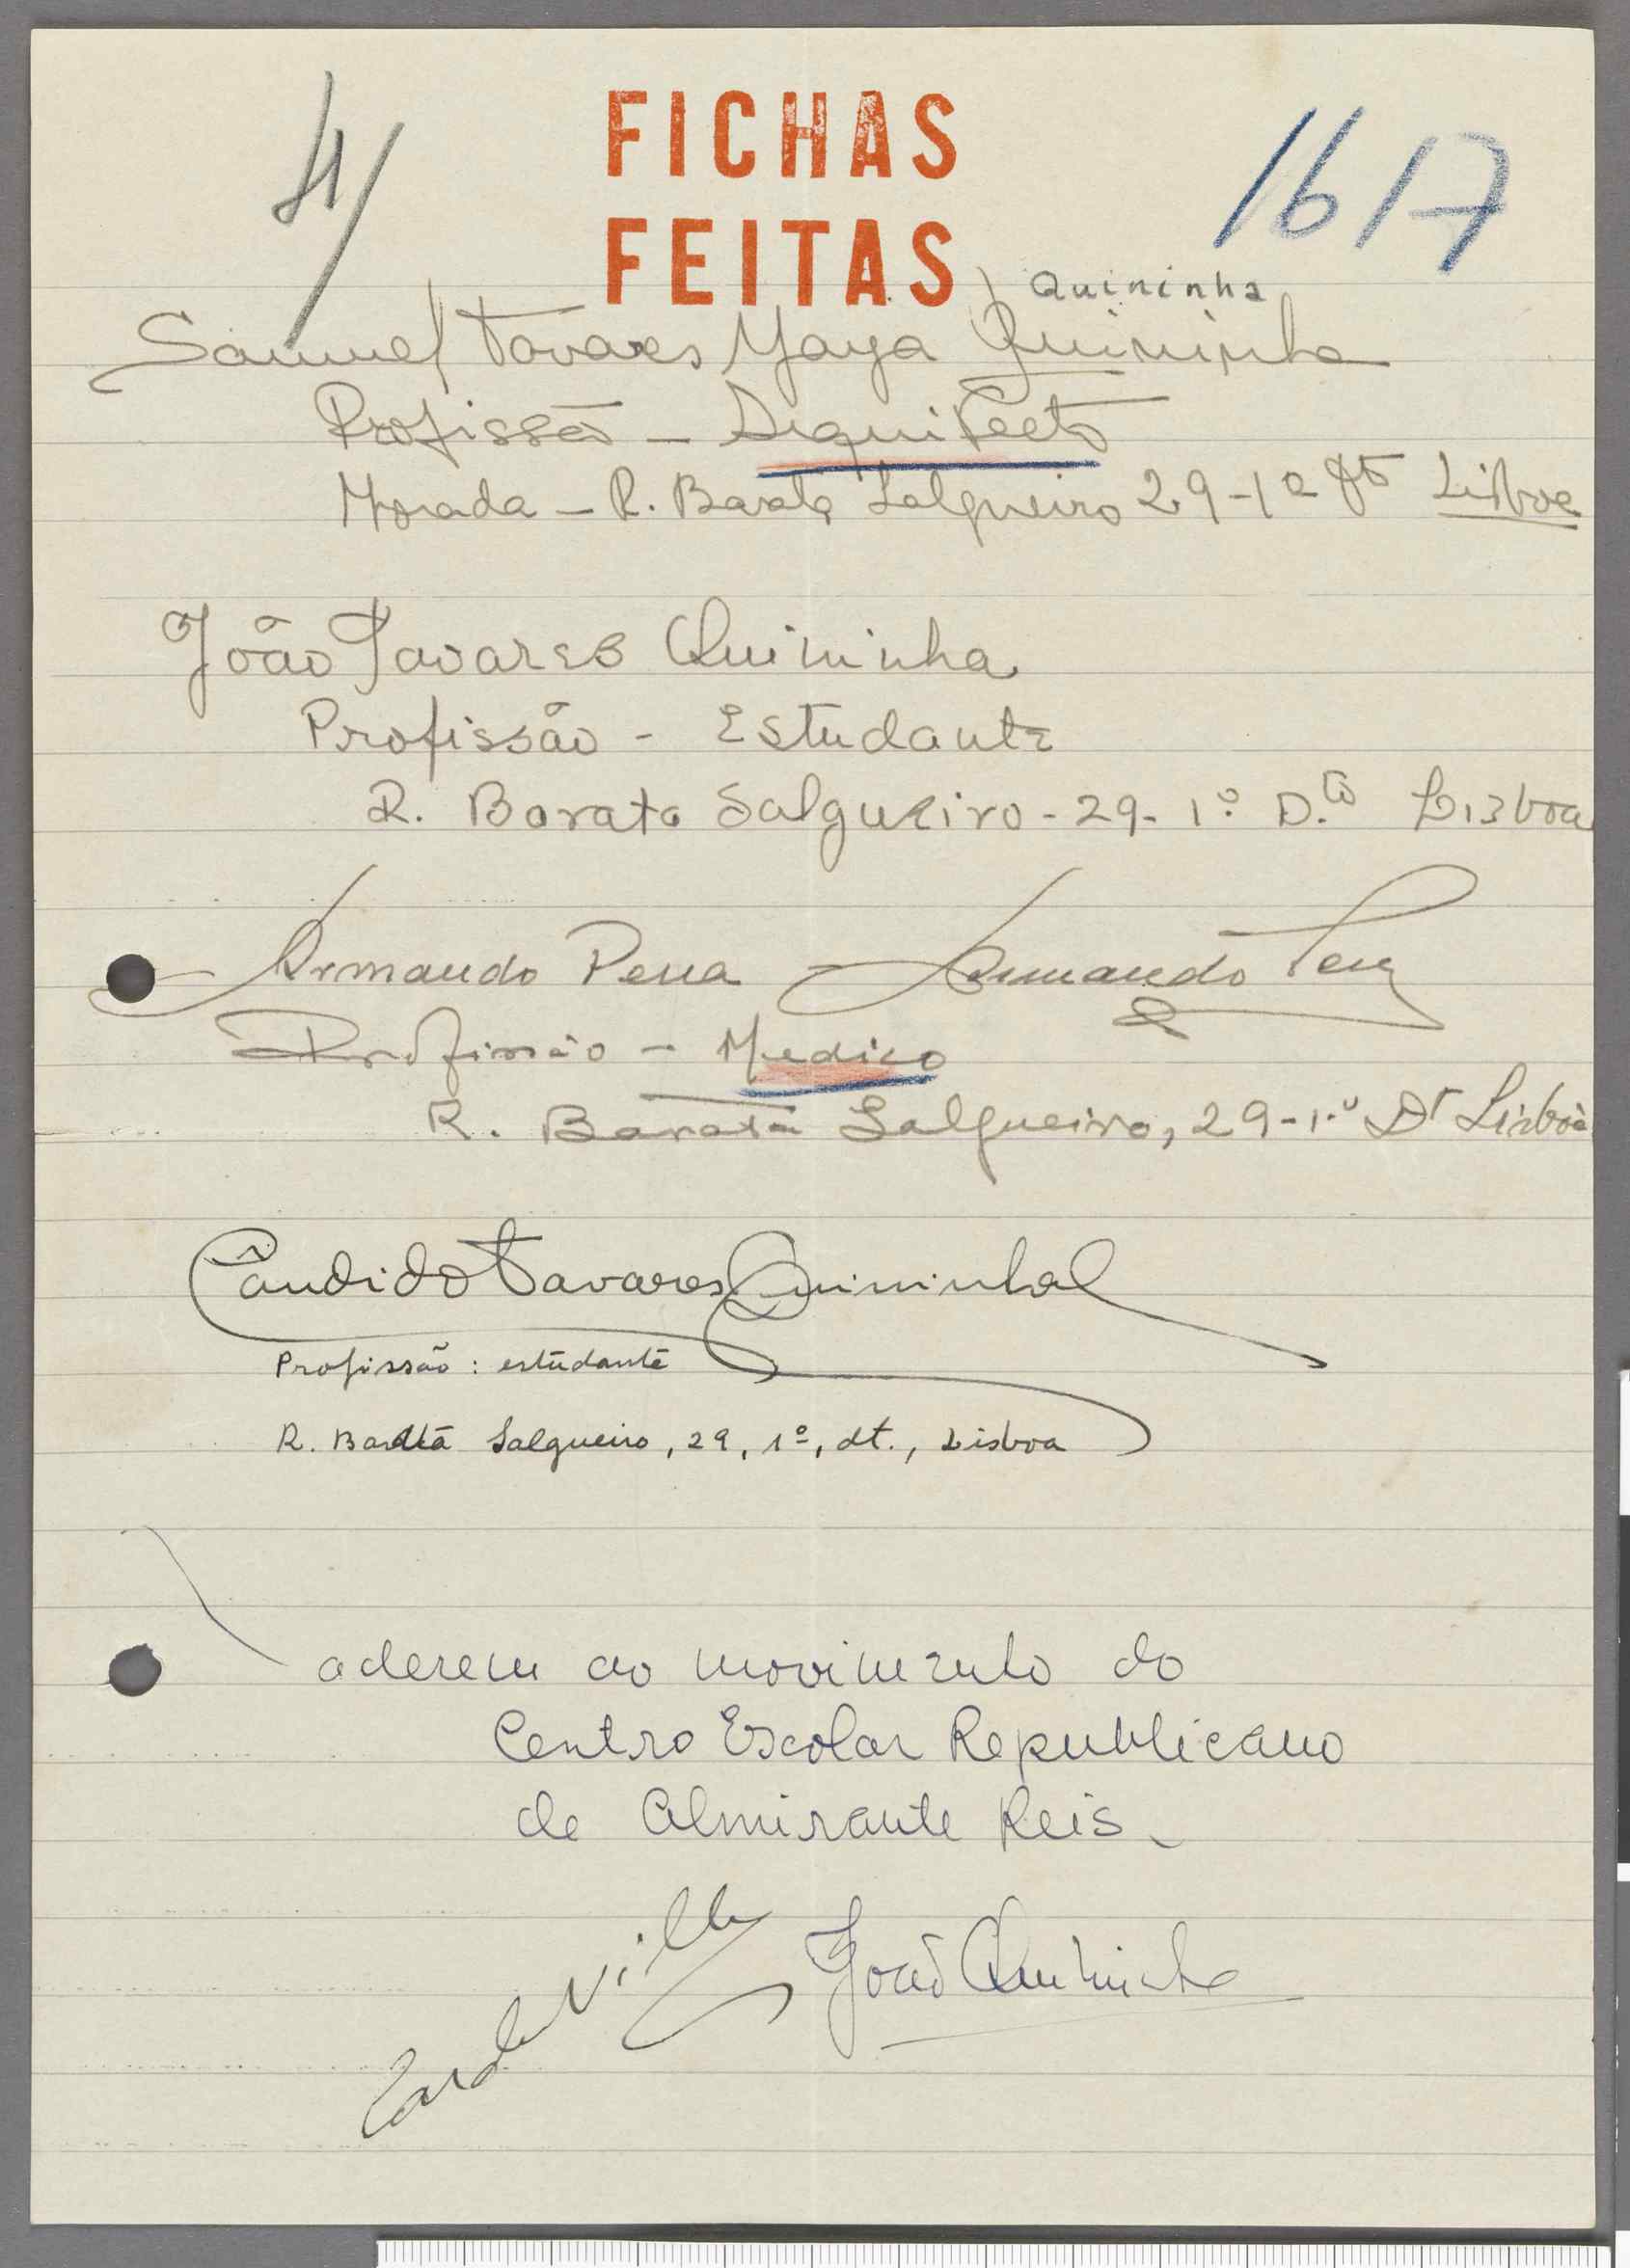 4/
FICHAS
FEITAS
1617
Quininha
Samuel Tavares Yaya Quininha
Profissão - Arquitecto
Morada - R. Barata Salgueiro 29-1º Dto Lisboa
João Tavares Quininha
Profissão - Estudante
R. Barata Salgueiro - 29 - 1.º D.to Lisboa
Armando Pena Armando Pena
Profissão - Medico
R. Barata Salgueiro, 29-1.º Dt Lisboa
Cândido Tavares Quininha
Profissão: estudante
R. Barata Salgueiro, 29, 1º, dt., Lisboa
aderem ao movimento do
Centro Escolar Republicano
de Almirante Reis.
João Quininha